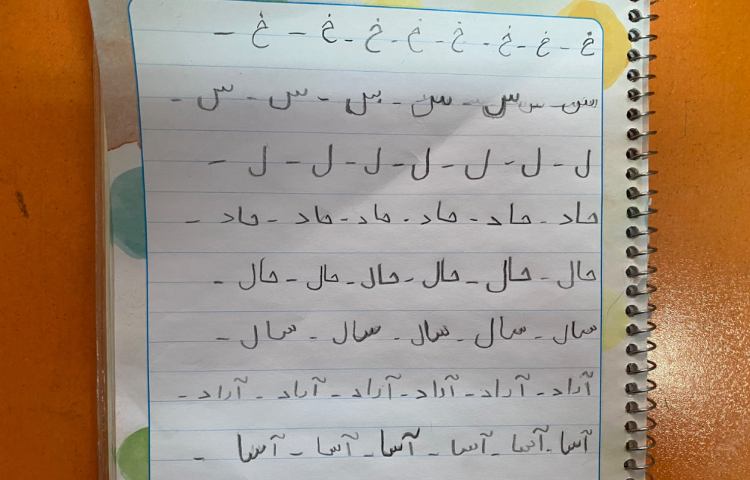 خ - خ - خ - خ - خ - خ - خ - خ -
س - س س - س - س - س - س -
ل - ل - ل - ل - ل - ل - ل -
حاد - حاد - حاد - حاد - حاد - حاد -
حال - حال - حال - حال - حال - حال -
سال - سال - سال - سال - سال -
آراد - آراد - آراد - آراد - آراد - آراد -
آسا - آسا - آسا - آسا - آسا - آسا -